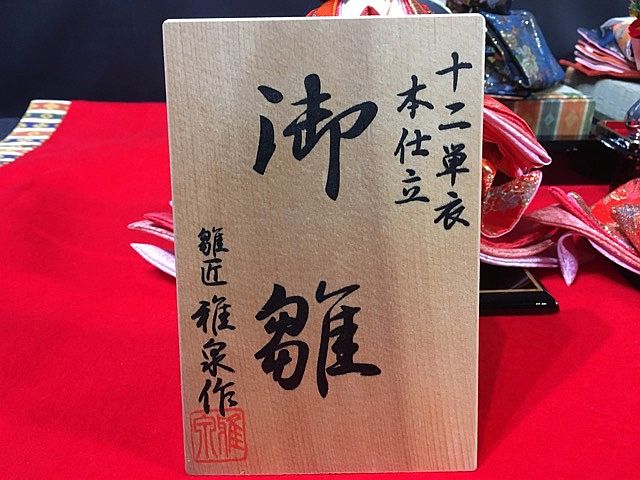 十二単衣
本仕立
御雛
雛匠 雅泉作
雅泉